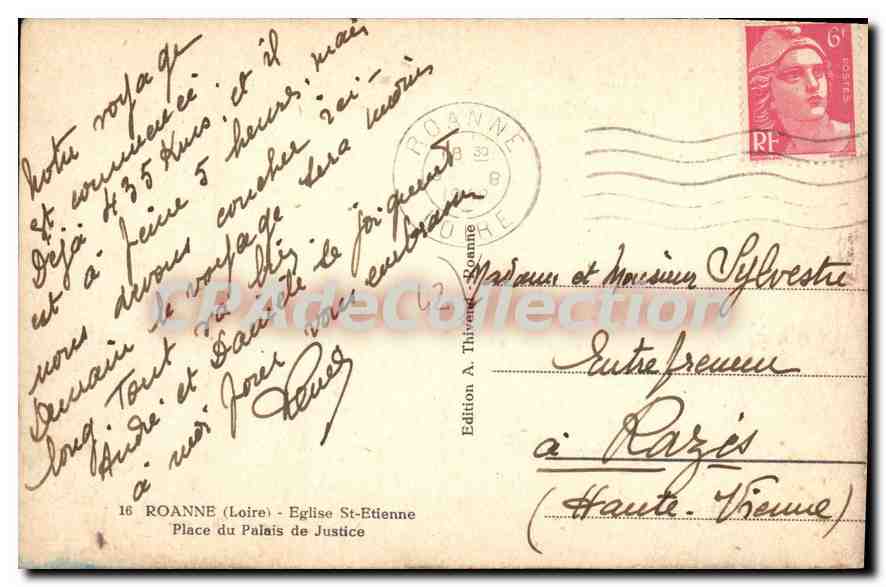 Notre voyage
est commencé.
Déjà 435 Kms, et il
est à peine 5 heures, mais
nous devons coucher ici -
Demain le voyage sera moins
long. Tout va bien
André et Danièle se joignent
à moi pour vous embrasser
16 ROANNE (Loire) - Eglise St-Etienne
Place du Palais de Justice
Edition A. Thivend - Roanne
CPADeCollection
ROANNE
LOIRE
6F
POSTES
RF
Madame et Monsieur Sylvestre
Entrepreneur
à Razès
(Haute-Vienne)